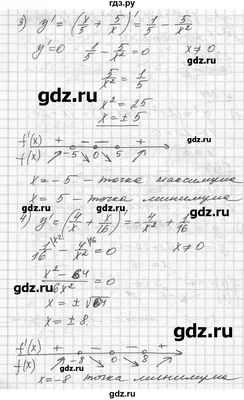 гдз.ру
3) y' = (x/5 + 5/x)' = 1/5 - 5/x²
y' = 0 1/5 - 5/x² = 0 x ≠ 0.
5/x² = 1/5
x² = 25
x = ± 5
f'(x) + - - +
f(x) -5 0 5
x = -5 - точка максимума
x = 5 - точка минимума
4) y' = (4/x + x/16)' = -4/x² + 1/16
1/16 - 4/x² = 0 x ≠ 0
x² - 64 / 16x² = 0
x = ± √64
x = ± 8.
f'(x) + - - +
f(x) -8 0 8
x = -8 точка минимума
гдз.ру